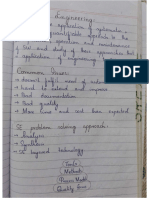 Engineering:
application of systematic,
quantifiable approach to the
operation and maintenance
and study of these approach that
application of engineering
Common Issues:
→ Doesn't fulfill need of
→ Hard to extend and improve
→ Bad documentation
→ Bad quality
→ More time and cost than expected
SE problem solving approach:
→ Analysis
→ Synthesis
→ SE layered technology
Tools
Methods
Process Model
Quality focus